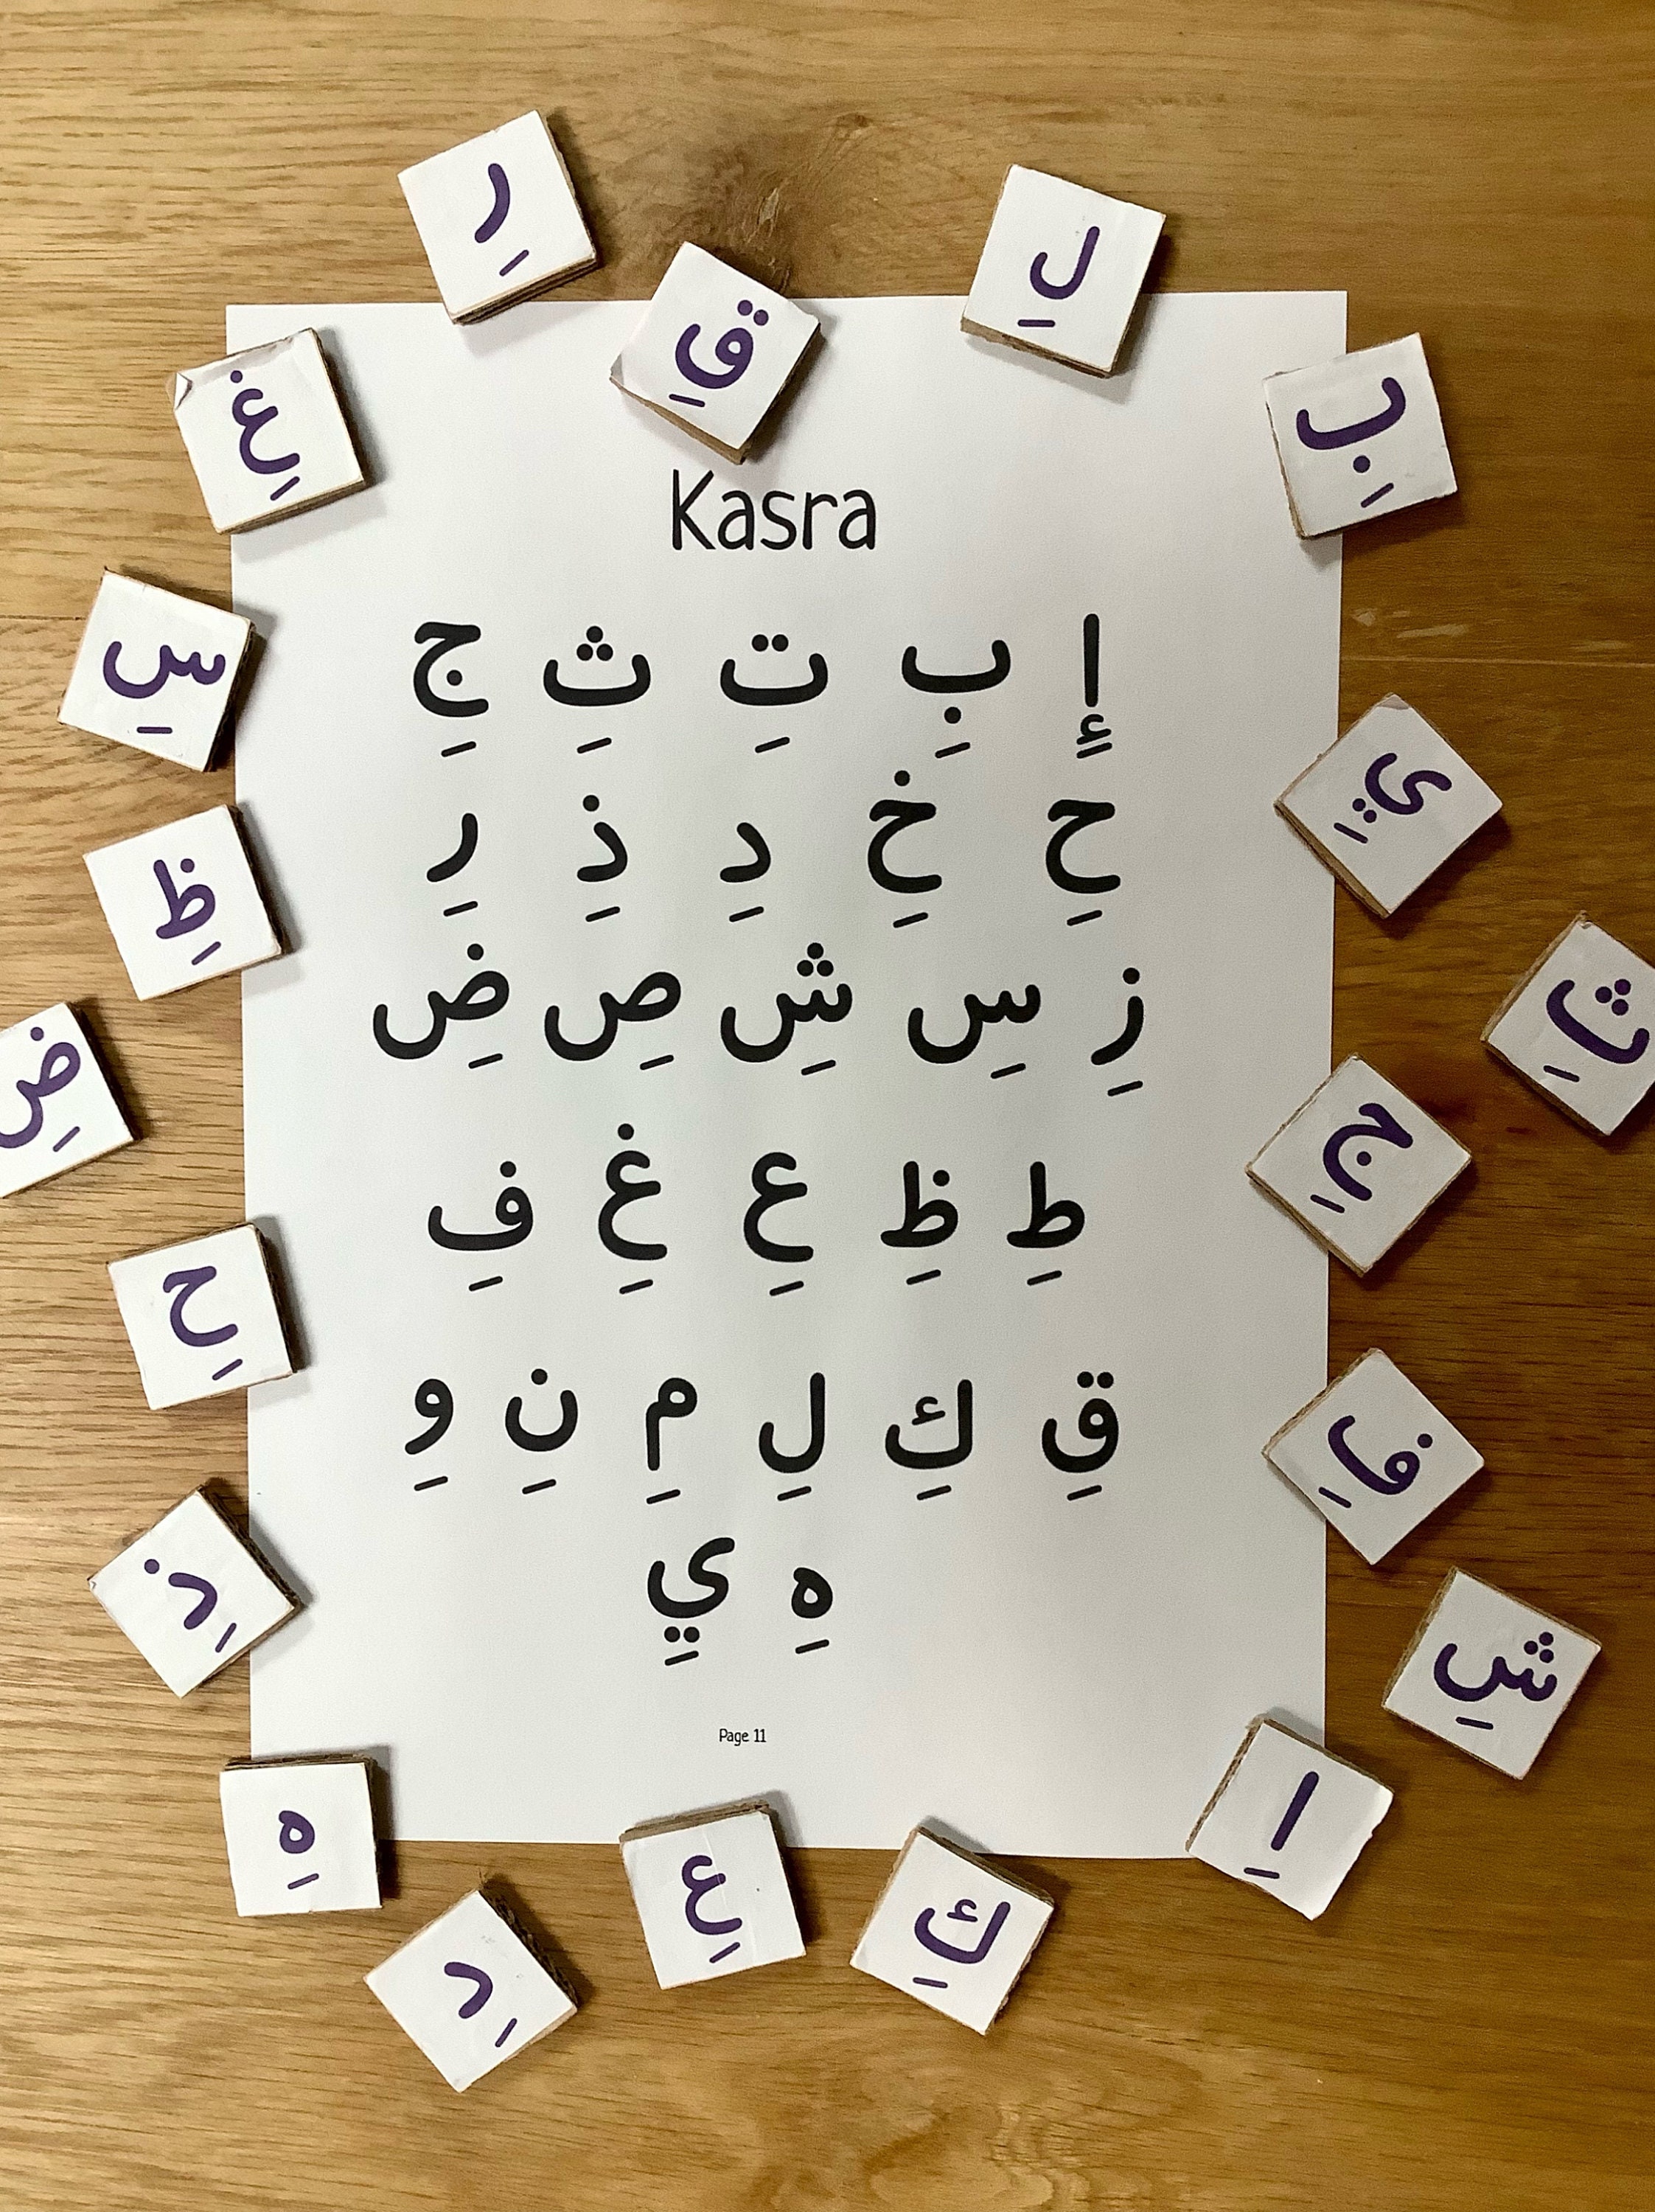 رِ
لِ
قِ
بِ
غِ
Kasra
إِ بِ تِ ثِ جِ
حِ خِ دِ ذِ رِ
زِ سِ شِ صِ ضِ
طِ ظِ عِ غِ فِ
قِ كِ لِ مِ نِ وِ
هِ يِ
Page 11
سِ
يِ
ظِ
ثِ
ضِ
جِ
حِ
فِ
ذِ
شِ
اِ
هِ
عِ
كِ
دِ